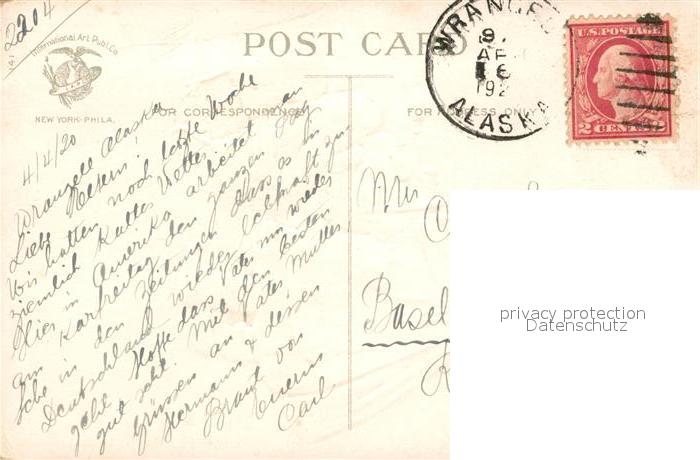 2204
141
International Art Publ. Co.
NEW YORK-PHILA.
POST CARD
FOR CORRESPONDENCE
FOR ADDRESS ONLY
WRANGELL
9.
AP
6
192
ALASKA
U.S. POSTAGE
2 CENTS 2
4/4/20
Wrangell Alaska
Liebe Eltern!
Wir hatten noch letzte Woche
ziemlich kaltes Wetter.
Hier in Amerika arbeitet man
am Karfreitag den ganzen Tag
Sehe in den Zeitungen dass es in
Deutschland wieder lebhaft zu
geht. Hoffe dass Vater nun wieder
gut geht. Mit den besten
Grüssen an Vater Mutter
Hermann & dessen
Braut von
Euerm
Carl
Mr
Basel
privacy protection
Datenschutz